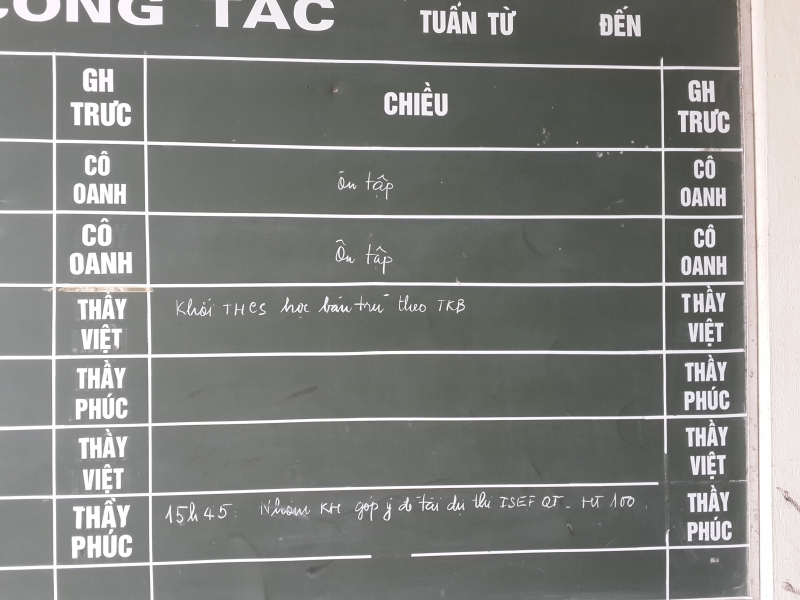 CÔNG TÁC
TUẤN TỪ ĐẾN
GH TRƯC
CHIỀU
GH TRƯC
CÔ OANH
Ôn tập
CÔ OANH
CÔ OANH
Ôn tập
CÔ OANH
THẦY VIỆT
Khối THCS học bán trú theo TKB
THẦY VIỆT
THẦY PHÚC
THẦY PHÚC
THẦY VIỆT
THẦY VIỆT
THẦY PHÚC
15h45: Nhóm KH góp ý đề tài dự thi ISEF QT - HT 100.
THẦY PHÚC